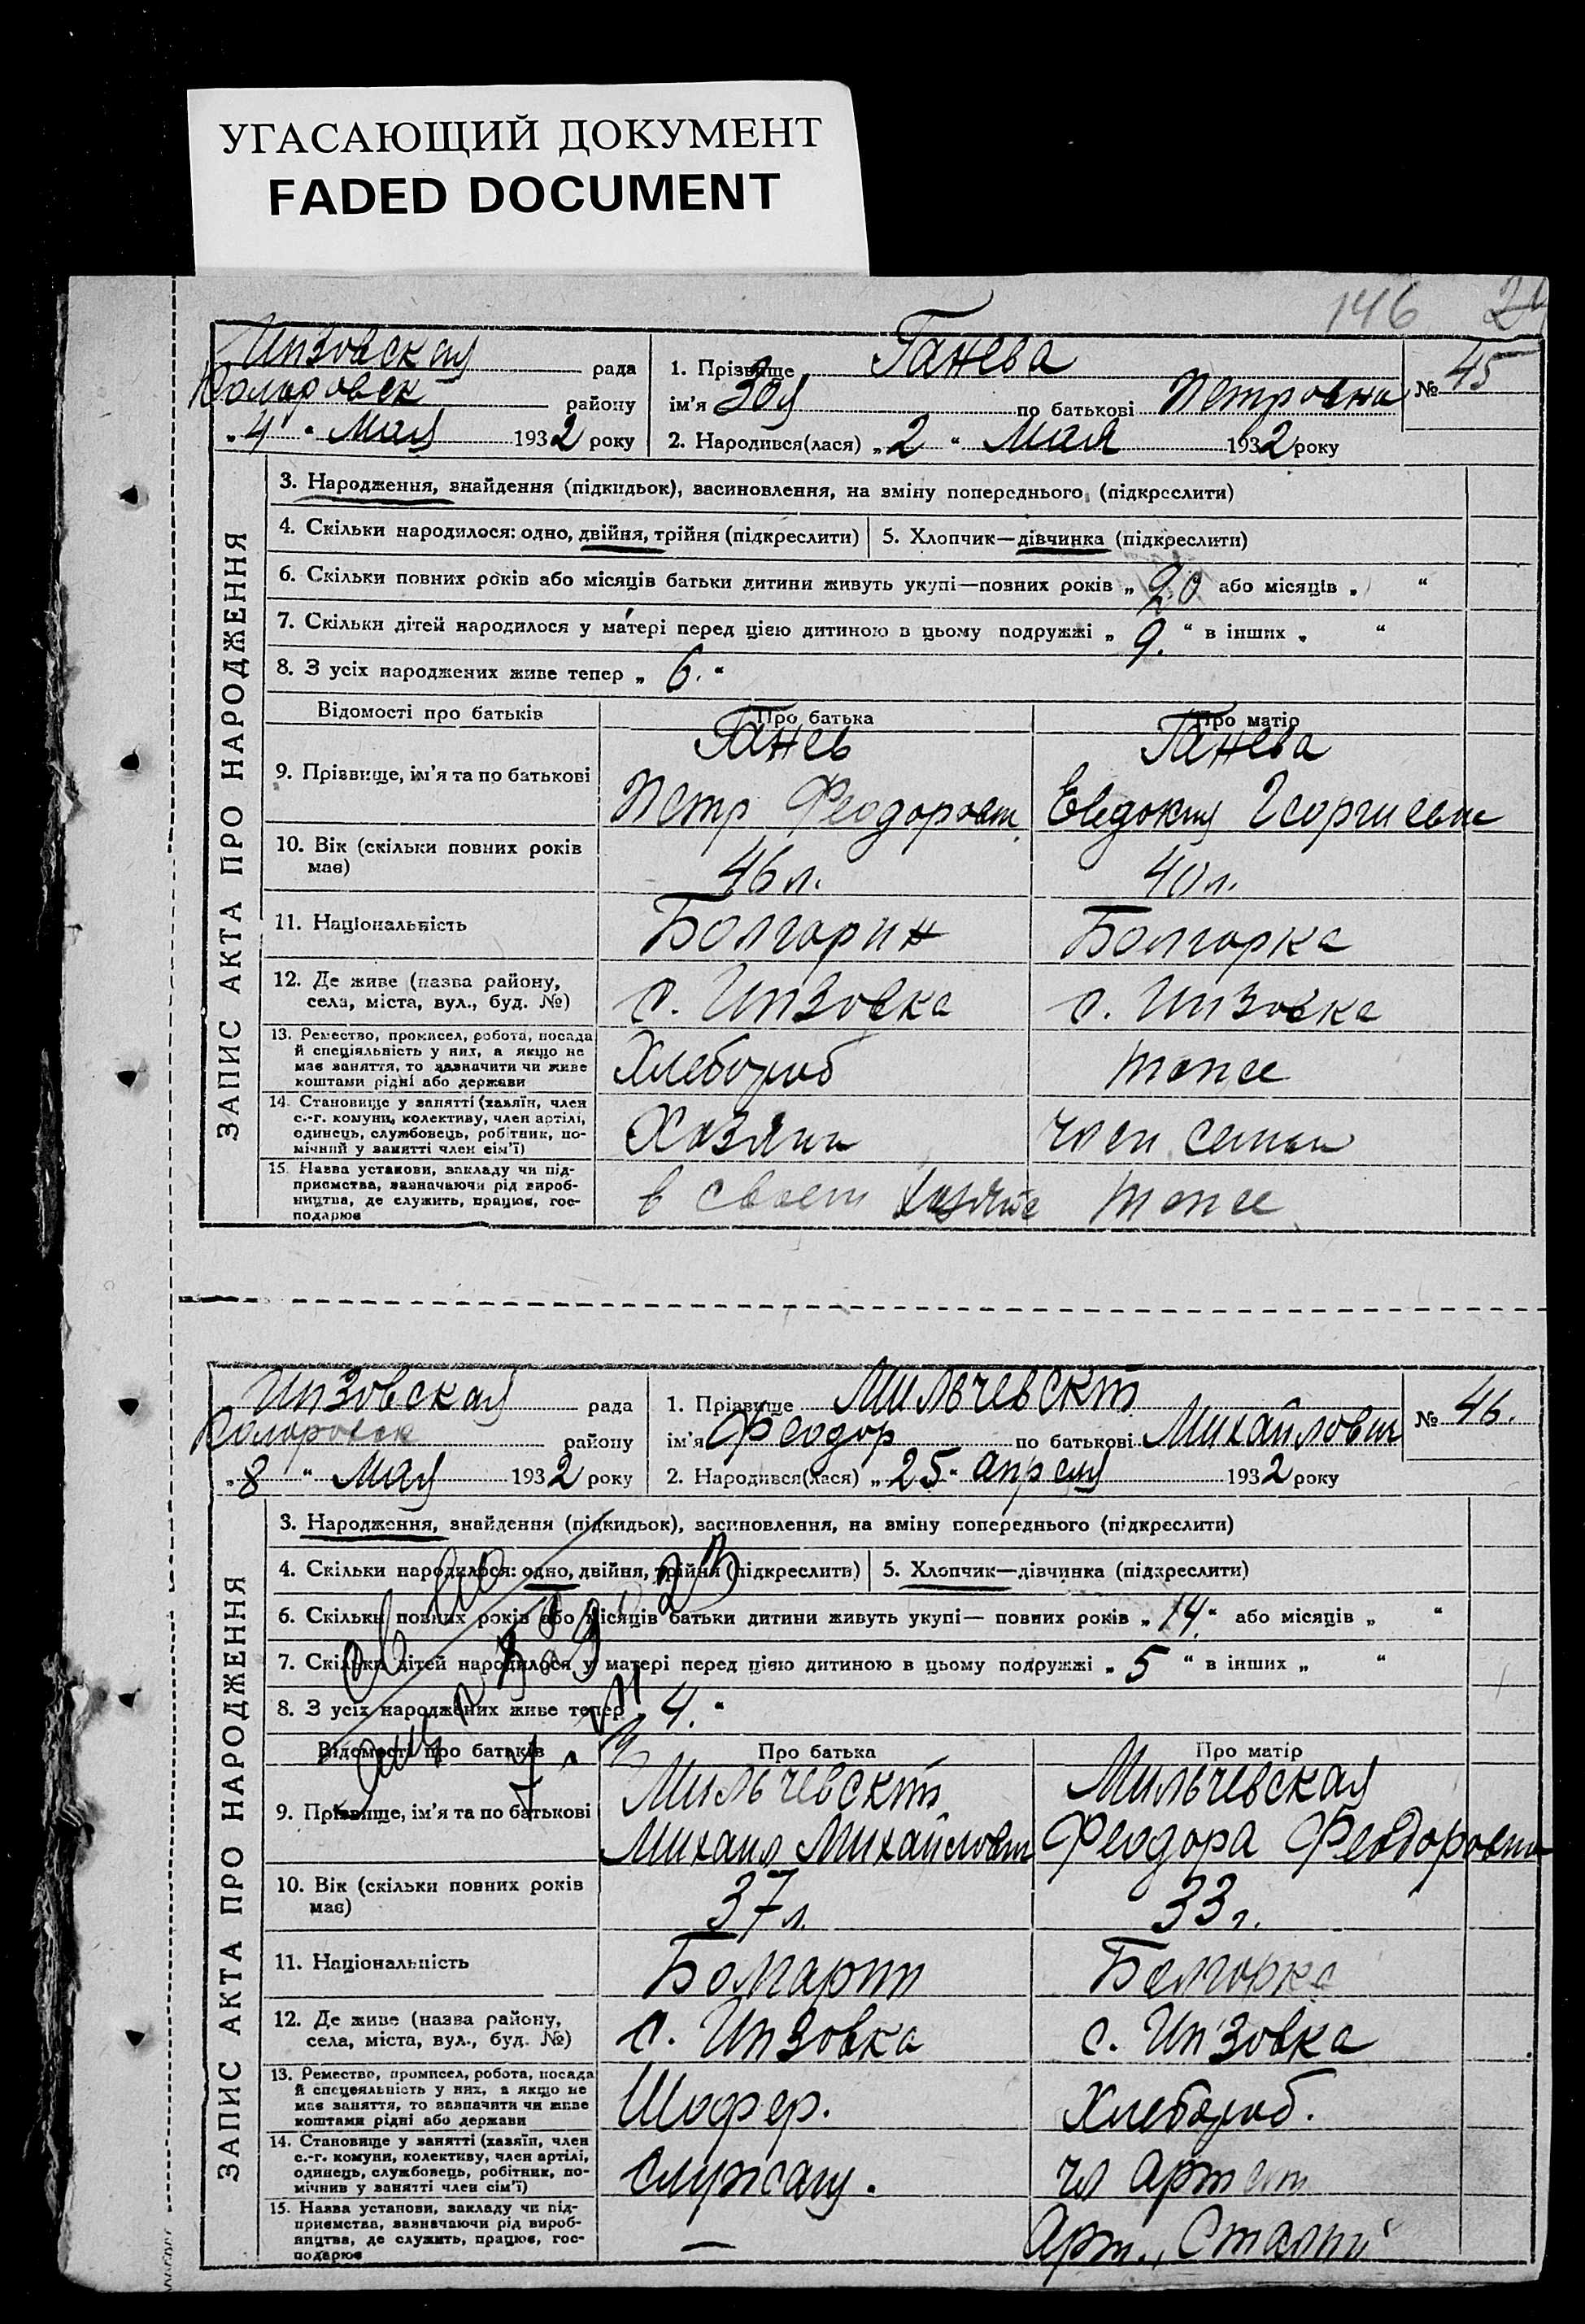 УГАСАЮЩИЙ ДОКУМЕНТ
FADED DOCUMENT
146
24
Инзовская рада
Коларовск району
„4“ Мая 1932 року
1. Прізвище Ганева
ім’я Зоя по батькові Петровна
2. Народився(лася) „2“ Мая 1932 року
№ 45
ЗАПИС АКТА ПРО НАРОДЖЕННЯ
3. Народження, знайдення (підкидьок), васиновлення, на вміну попереднього (підкреслити)
4. Скільки народилося: одно, двійня, трійня (підкреслити) 5. Хлопчик—дівчинка (підкреслити)
6. Скільки повних років або місяців батьки дитини живуть укупі—повних років „20 або місяців „ “
7. Скільки дітей народилося у матері перед цією дитиною в цьому подружжі „9.“ в інших „ “
8. З усіх народжених живе тепер „6.“
Відомості про батьків Про батька Про матір
9. Прізвище, ім’я та по батькові
Ганев
Петр Феодорович
Ганева
Евдокия Георгиевна
10. Вік (скільки повних років
має)
46 л. 40 л.
11. Національність Болгарин Болгарка
12. Де живе (назва району,
села, міста, вул., буд. №)
с. Инзовка с. Инзовка
13. Ремество, промисел, робота, посада
й спеціяльність у них, а якщо не
має заняття, то зазначити чи живе
коштами рідні або держави
Хлебороб тоже
14. Становище у занятті (хазяїн, член
с.-г. комуни, колективу, член артілі,
одинець, службовець, робітник, по-
мічний у занятті член сім’ї)
Хозяин член семьи
15. Назва установи, закладу чи під-
приємства, зазначаючи рід вироб-
ництва, де служить, працює, гос-
подарює
в своем тоже
Инзовская рада
Коларовск району
„8“ Мая 1932 року
1. Прізвище Мильчевский
ім’я Феодор по батькові Михайлович
2. Народився(лася) „25“ апреля 1932 року
№ 46.
ЗАПИС АКТА ПРО НАРОДЖЕННЯ
3. Народження, знайдення (підкидьок), засиновлення, на вміну попереднього (підкреслити)
4. Скільки народилося: одно, двійня, трійня (підкреслити) 5. Хлопчик—дівчинка (підкреслити)
6. Скільки повних років або місяців батьки дитини живуть укупі— повних років „14.“ або місяців „ “
7. Скільки дітей народилося у матері перед цією дитиною в цьому подружжі „5“ в інших „ “
8. З усіх народжених живе тепер „4.“
Відомості про батьків Про батька Про матір
9. Прізвище, ім’я та по батькові
Мильчевский
Михаил Михайлович
Мильчевская
Феодора Феодоровна
10. Вік (скільки повних років
має)
37 л. 33 г.
11. Національність Болгарин Болгарка
12. Де живе (назва району,
села, міста, вул., буд. №)
с. Инзовка с. Инзовка
13. Ремество, промисел, робота, посада
й спецеяльність у них, а якщо не
має заняття, то зазначити чи живе
коштами рідні або держави
Шофер. Хлебороб.
14. Становище у занятті (хазяїн, член
с.-г. комуни, колективу, член артілі,
одинець, службовець, робітник, по-
мічнив у занятті член сім’ї)
Служащ. чл артели
15. Назва установи, закладу чи під-
приємства, зазначаючи рід вироб-
ництва, де служить, працює, гос-
подарює
— Арт. „Сталин“